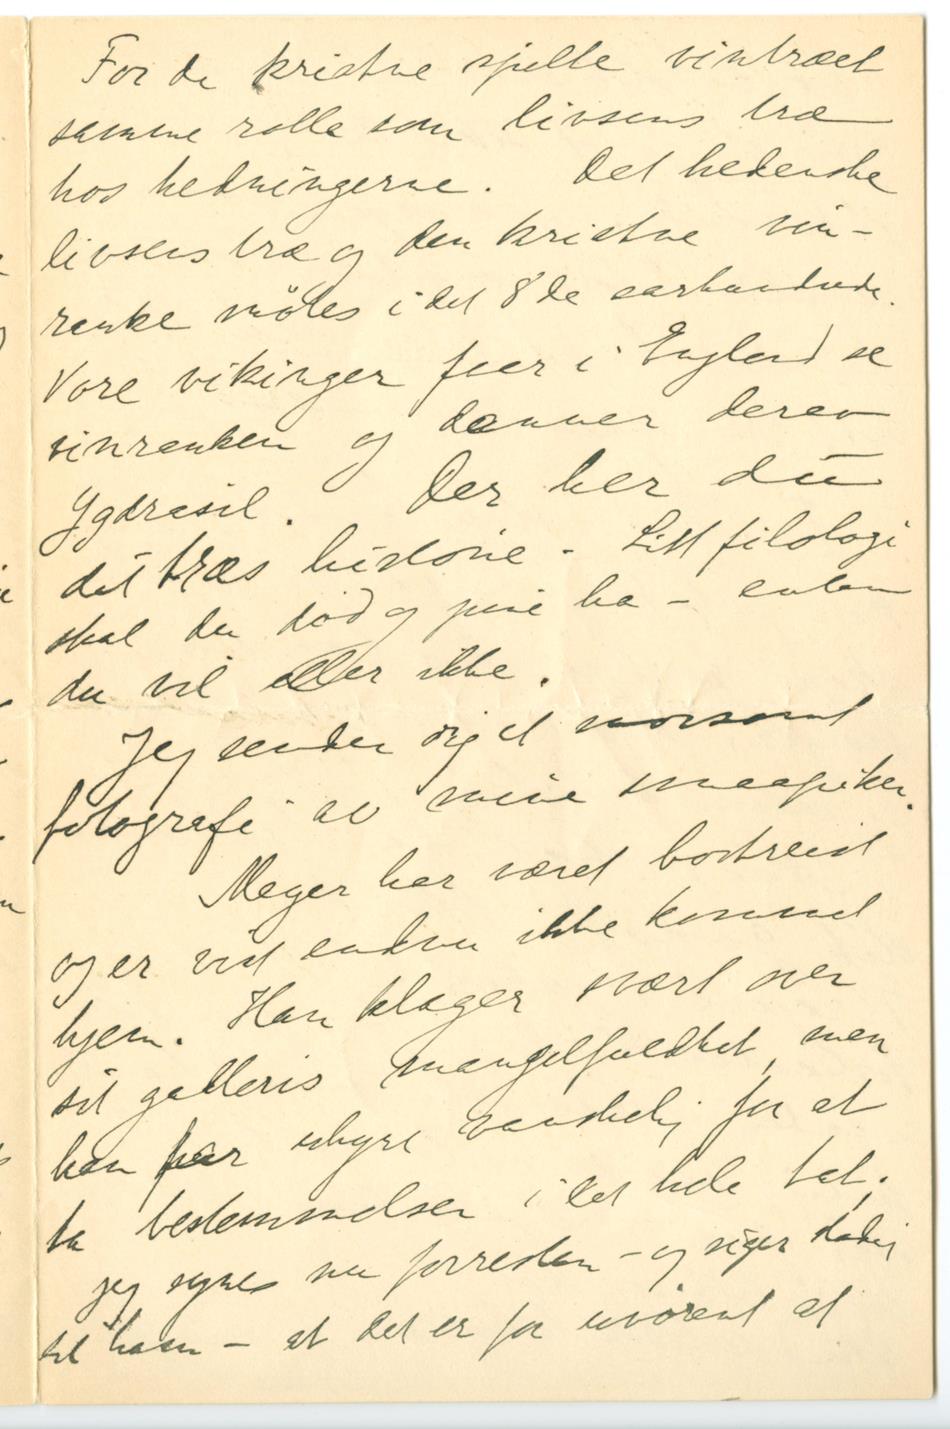 For de kristne spille vintræet
samme rolle som livsens træ
hos hedningerne. Det hedenske
livsens træ og den kristne vin-
ranke møtes i det 8de aarhundrede.
Vore vikinger faar i England se
vinranken og danner derav
Ygdrasil. Der har du
det træs historie - Litt filologi
skal du død og pine ha - enten
du vil eller ikke.
Jeg sender dig et morsomt
fotografi av mine smaapiker.
Meyer har været bortreist
og er vist endnu ikke kommet
hjem. Han klager svært over
sit galleris mangelfuldhet, men
han har uhyre vanskelig for at
ta bestemmelser i det hele tat.
jeg synes nu forresten - og siger stadig
til ham - at det er for uvørent at